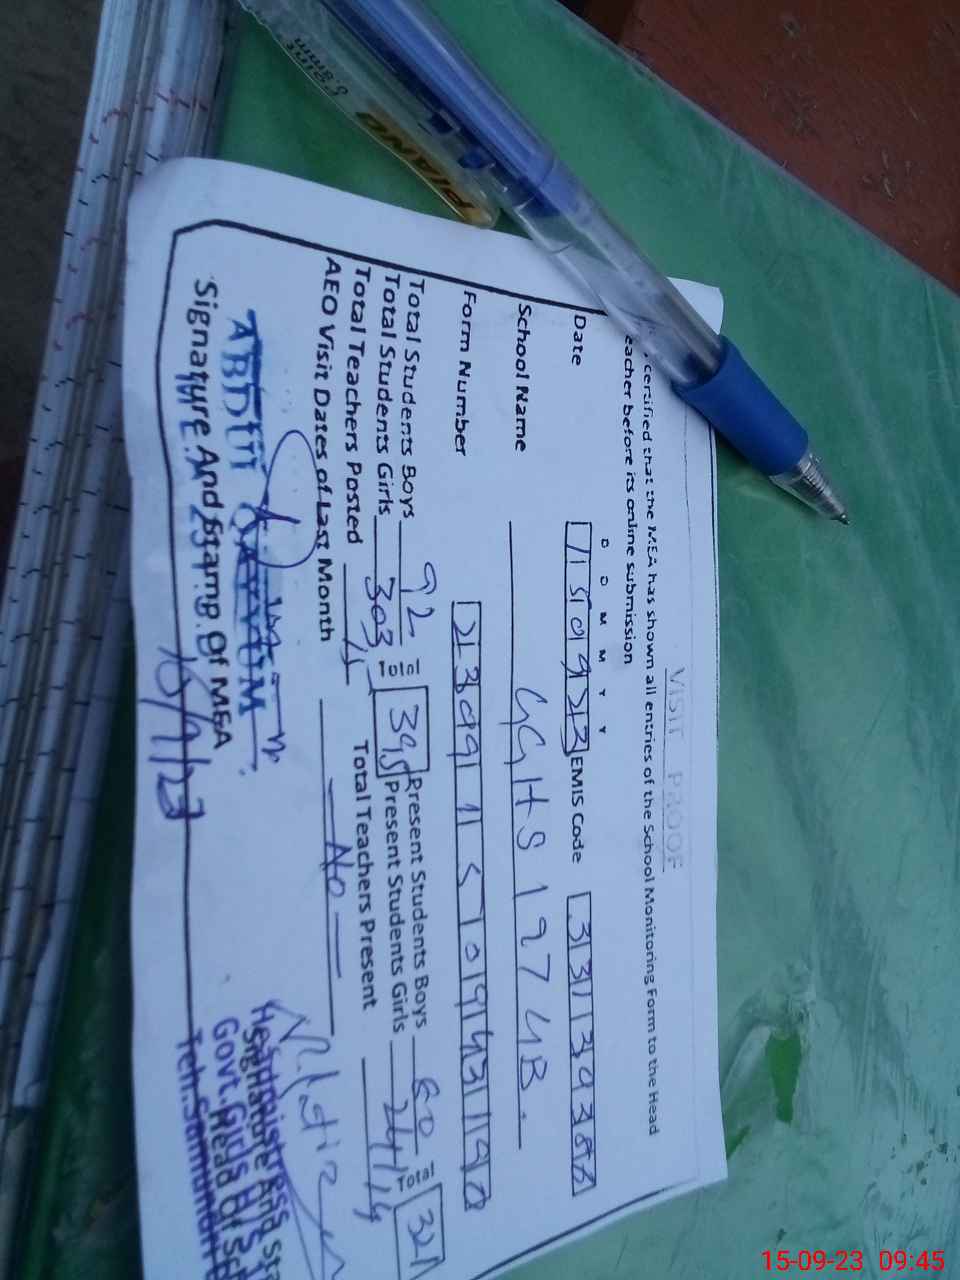 VISIT PROOF
certified that the MEA has shown all entries of the School Monitoring Form to the Head
eacher before its online submission
D D M M Y Y
Date 150923 EMIS Code
School Name GGHS 127 4B.
Form Number
Total Students Boys 92 Total 395 Present Students Boys 80 Total 321
Total Students Girls 303 Present Students Girls 241
Total Teachers Posted 15 Total Teachers Present 14
AEO Visit Dates of Last Month No
ABDUL QAYYUM
Signature And Stamp Of MEA
15/9/23
Headmistress
Signature And Sta
Govt. Girls H/S
Head Of Sc
Teh.
PIANO
Point
0.8mm
15-09-23 09:45